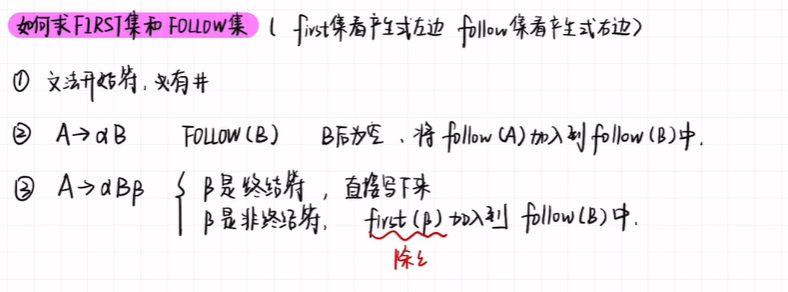 如何求FIRST集和FOLLOW集（first集看产生式左边 follow集看产生式右边）
① 文法开始符，必有#
② A→αB FOLLOW(B) B后为空，将follow(A)加入到follow(B)中.
③ A→αBβ { β是终结符，直接写下来
β是非终结符，first(β)加入到follow(B)中.
除ε